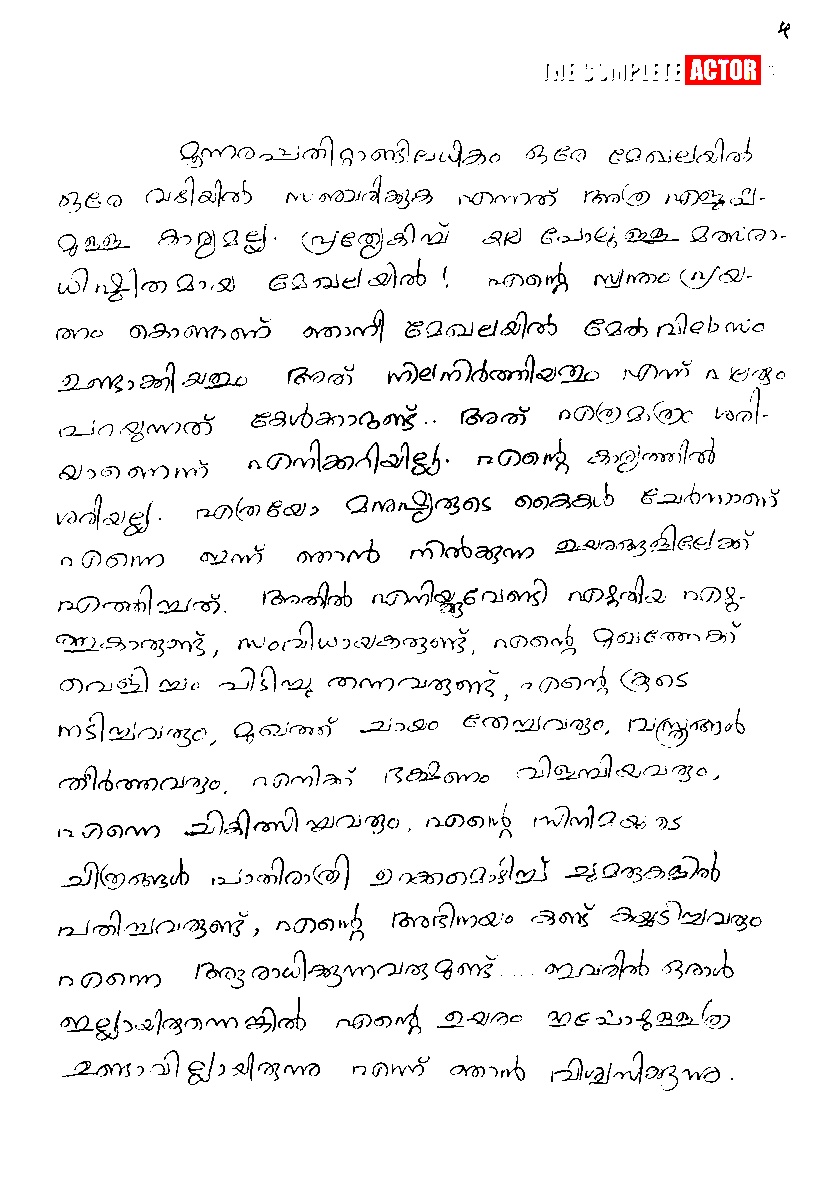 4
THE COMPLETE ACTOR
മൂന്നരപതിറ്റാണ്ടിലധികം ഒരേ മേഖലയിൽ
ഒരേ വഴിയിൽ സഞ്ചരിക്കുക എന്നത് അത്ര എളുപ്പ-
മുള്ള കാര്യമല്ല. പ്രത്യേകിച്ച് കല പോലുള്ള മത്സരാ-
ധിഷ്ഠിതമായ മേഖലയിൽ! എന്റെ സ്വന്തം പ്രയ-
ത്നം കൊണ്ടാണ് ഞാനീ മേഖലയിൽ മേൽവിലാസം
ഉണ്ടാക്കിയതും അത് നിലനിർത്തിയതും എന്ന് പലരും
പറയുന്നത് കേൾക്കാറുണ്ട്.. അത് എത്രമാത്രം ശരി-
യാണെന്ന് എനിക്കറിയില്ല. എന്റെ കാര്യത്തിൽ
ശരിയല്ല. എത്രയോ മനുഷ്യരുടെ കൈകൾ ചേർന്നാണ്
എന്നെ ഇന്ന് ഞാൻ നിൽക്കുന്ന ഉയരങ്ങളിലേക്ക്
എത്തിച്ചത്. അതിൽ എനിയ്ക്കുവേണ്ടി എഴുതിയ എഴു-
ത്തുകാരുണ്ട്, സംവിധായകരുണ്ട്, എന്റെ മുഖത്തേക്ക്
വെളിച്ചം പിടിച്ചു തന്നവരുണ്ട്, എന്റെ കൂടെ
നടിച്ചവരും, മുഖത്ത് ചായം തേച്ചവരും, വസ്ത്രങ്ങൾ
തീർത്തവരും, എനിക്ക് ഭക്ഷണം വിളമ്പിയവരും,
എന്നെ ചികിത്സിച്ചവരും, എന്റെ സിനിമകളുടെ
ചിത്രങ്ങൾ പാതിരാത്രി ഉറക്കമൊഴിച്ച് ചുമരുകളിൽ
പതിച്ചവരുണ്ട്, എന്റെ അഭിനയം കണ്ട് കയ്യടിച്ചവരും
എന്നെ ആരാധിക്കുന്നവരുമുണ്ട്.... ഇവരിൽ ഒരാൾ
ഇല്ലായിരുന്നെങ്കിൽ എന്റെ ഉയരം ഇപ്പോഴുള്ളത്ര
ഉണ്ടാവില്ലായിരുന്നു എന്ന് ഞാൻ വിശ്വസിക്കുന്നു.